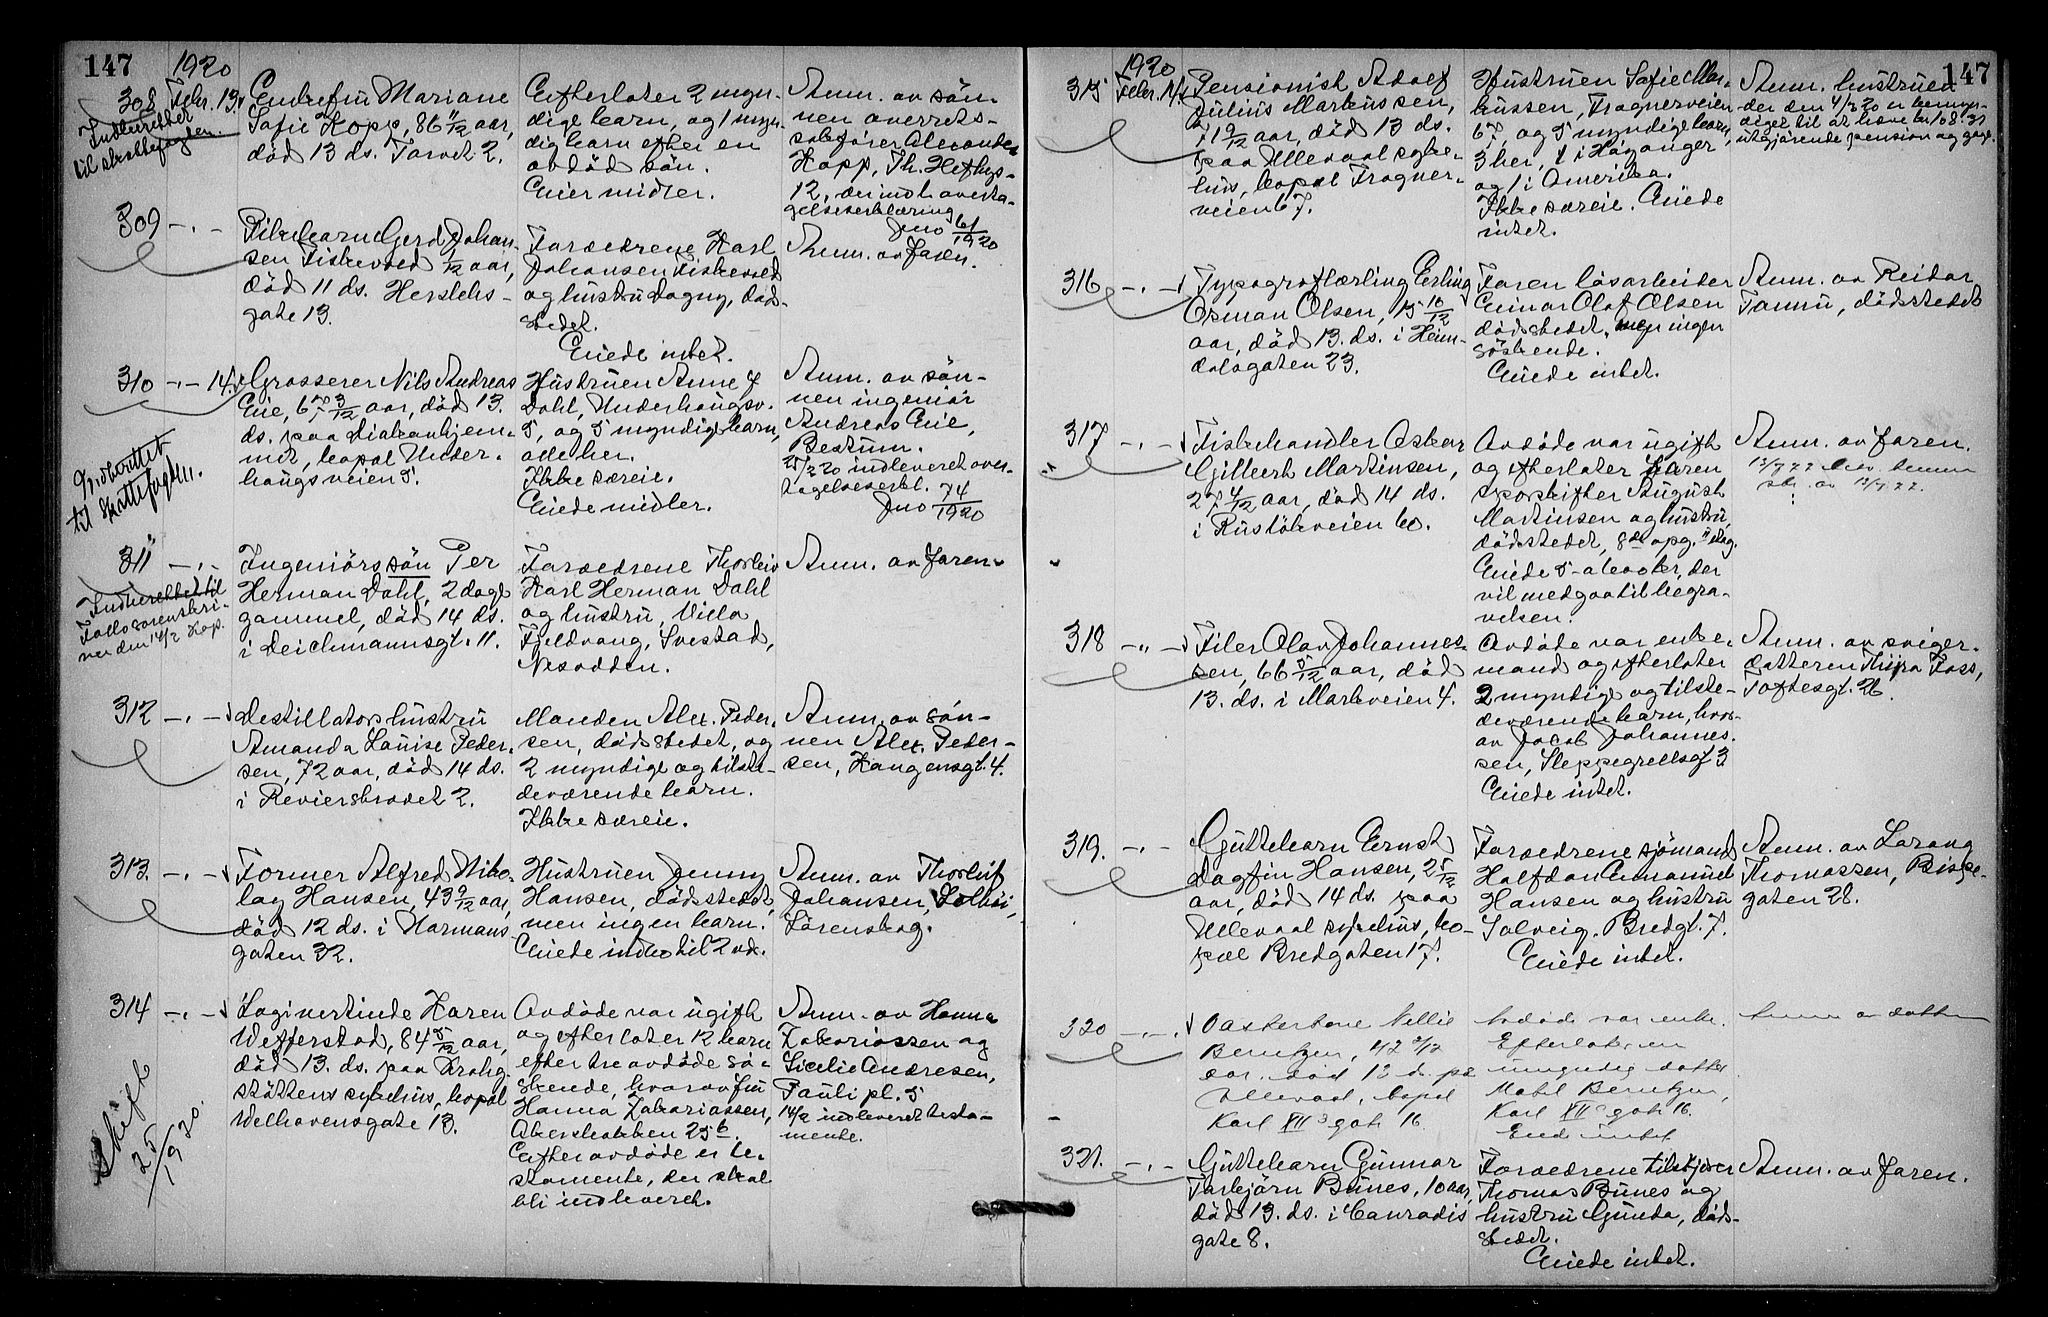 147
1920
308 Febr. 13.
Indberettet
til skattefogden.
Enkefru Mariane
Sofie Kopp, 86 11/12 aar,
död 13 ds. Torvet 2.
Efterlater 2 myn-
dige barn, og 1 myn-
dig barn efter en
avdöd sön.
Eier midler.
Anm. av sön-
nen overrets-
sakförer Alexander
Kopp, Th. Heftyes-
12, der indl. overta-
gelseserklæring
Jno 61/1920
309 -"-
Pikebarn Gerd Johan-
sen Fiskevold 1/12 aar,
död 11 ds. Herslebs-
gate 13.
Forældrene Karl
Johansen Fiskevold
og hustru Dagny, död-
stedet.
Eiede intet.
Anm. av faren.
310 -"- 14.
Indberettet
til skattefogden.
Grosserer Nils Andreas
Eie, 67 3/12 aar, död 13.
ds. paa Diakonhjem-
met, bopæl Under-
haugsveien 5.
Hustruen Anne f.
Dahl, Underhaugsv.
5, og 5 myndige barn,
alle her.
Ikke særeie.
Eiede midler.
Anm. av sön-
nen ingeniör
Andreas Eie,
Bestum.
25/2 20 indleveret over-
tagelseserkl.
Jno 74/1920
311 -"-
Indberettet til
Follo sorenskri-
ver den 14/2 Kop.
Ingeniörs sön Per
Herman Dahl, 2 dage
gammel, död 14 ds.
i Deichmannsgt. 11.
Forældrene Thorleiv
Karl Herman Dahl
og hustru, Villa
Fjeldvang, Svestad,
Nesodden.
Anm. av faren.
312 -"-
Destillatörs hustru
Amanda Louise Peder-
sen, 72 aar, död 14 ds.
i Revierstrædet 2.
Manden Alex. Peder-
sen, dödsstedet, og
2 myndige og tilste-
deværende barn.
Ikke særeie.
Anm. av sön-
nen Alex. Peder-
sen, Haugensgt. 4.
313. -"-
Former Alfred Niko-
lay Hansen, 43 9/12 aar,
död 12 ds. i Normans-
gaten 32.
Hustruen Jenny
Hansen, dödsstedet,
men ingen barn.
Eiede indbo til 2 vd.
Anm. av Thorleif
Johansen, Solhöi,
Lörenskog.
314 -"-
Skifte
25/1920.
Logivertinde Karen
Wefferstad, 84 5/12 aar,
död 13. ds. paa Krohg-
stöttens sykehus, bopæl
Welhavensgate 13.
Avdöde var ugift
og efterlater 12 barn
efter tre avdöde sö-
skende, hvorav fru
Hanna Zakariassen,
Akersbakken 25 b.
Efter avdöde er te-
stamente, der skal
bli indleveret.
Anm. av Hanna
Zakariassen og
Sicelie Andresen,
Pauli pl. 5
14/2 indleveret testa-
mente.
147
1920
315 Febr. 14.
Pensionist Adolf
Julius Markussen,
71 9/12 aar, död 13 ds.
paa Ullevaal syke-
hus, bopæl Frogner-
veien 67.
Hustruen Sofie Mar-
kussen, Frognerveien
67, og 5 myndige barn,
3 her, 1 i Höyanger
og 1 i Amerika.
Ikke særeie. Eiede
intet.
Anm. hustruen
der den 4/3 20 er bemyn-
diget til at hæve kr 108.31
utgjörende pension og gage.
316 -"-
Typograflærling Erling
Osman Olsen, 15 10/12
aar, död 13. ds. i Heim-
dalsgaten 23.
Faren lösarbeider
Einar Olaf Olsen
dödsstedet, men ingen
söskende.
Eiede intet.
Anm. av Reidar
Tommu, dödsstedet
317 -"-
Fiskehandler Oskar
Gilbert Martinsen,
27 4/12 aar, död 14 ds.
i Rustökveien 60.
Avdöde var ugift
og efterlater faren
sporskifter August
Martinsen og hustru,
dödsstedet, 8de opg. 11 etag.
Eiede 5-a kroker, der
vil medgaa til begra-
velsen.
Anm. av faren.
318 -"-
Filer Olav Johannes-
sen, 66 5/12 aar, död
13. ds. i Markveien 4.
Avdöde var enke-
mand og efterlater
2 myndige og tilste-
deværende barn, hvor-
av Jacob Johannes-
sen, Steppegrellsgt 3
Eiede intet.
Anm. av sviger-
datteren Thyra Foss,
Toftesgt. 26.
319. -"-
Guttebarn Ernst
Dagfin Hansen, 2 5/12
aar, död 14 ds. paa
Ullevaal sykehus, bo-
pæl Bredgaten 17.
Forældrene sjömand
Halfdan Emanuel
Hansen og hustru
Solveig. Bredgt. 7.
Eiede intet.
Anm. av
Thomassen, Bispe-
gaten 28.
320 -"-
Vasterkone Nellie
Berntzen, 42 2/12
aar. död 13 ds. pa
Ullevaal, bopæl
Karl XII's gate 16
Avdöde var enke.
Efterlater en
umyndig datter
Mabel Berntzen,
Karl XII's gate 16.
Eiede intet
Anm av datter
321. -"-
Guttebarn Gunnar
Torbjörn Bunes, 10 aar,
död 13. ds. i Conradis
gate 8.
Forældrene tilskjærer
Thomas Bunes og
hustru Gunda, död-
stedet.
Eiede intet.
Anm. av faren.